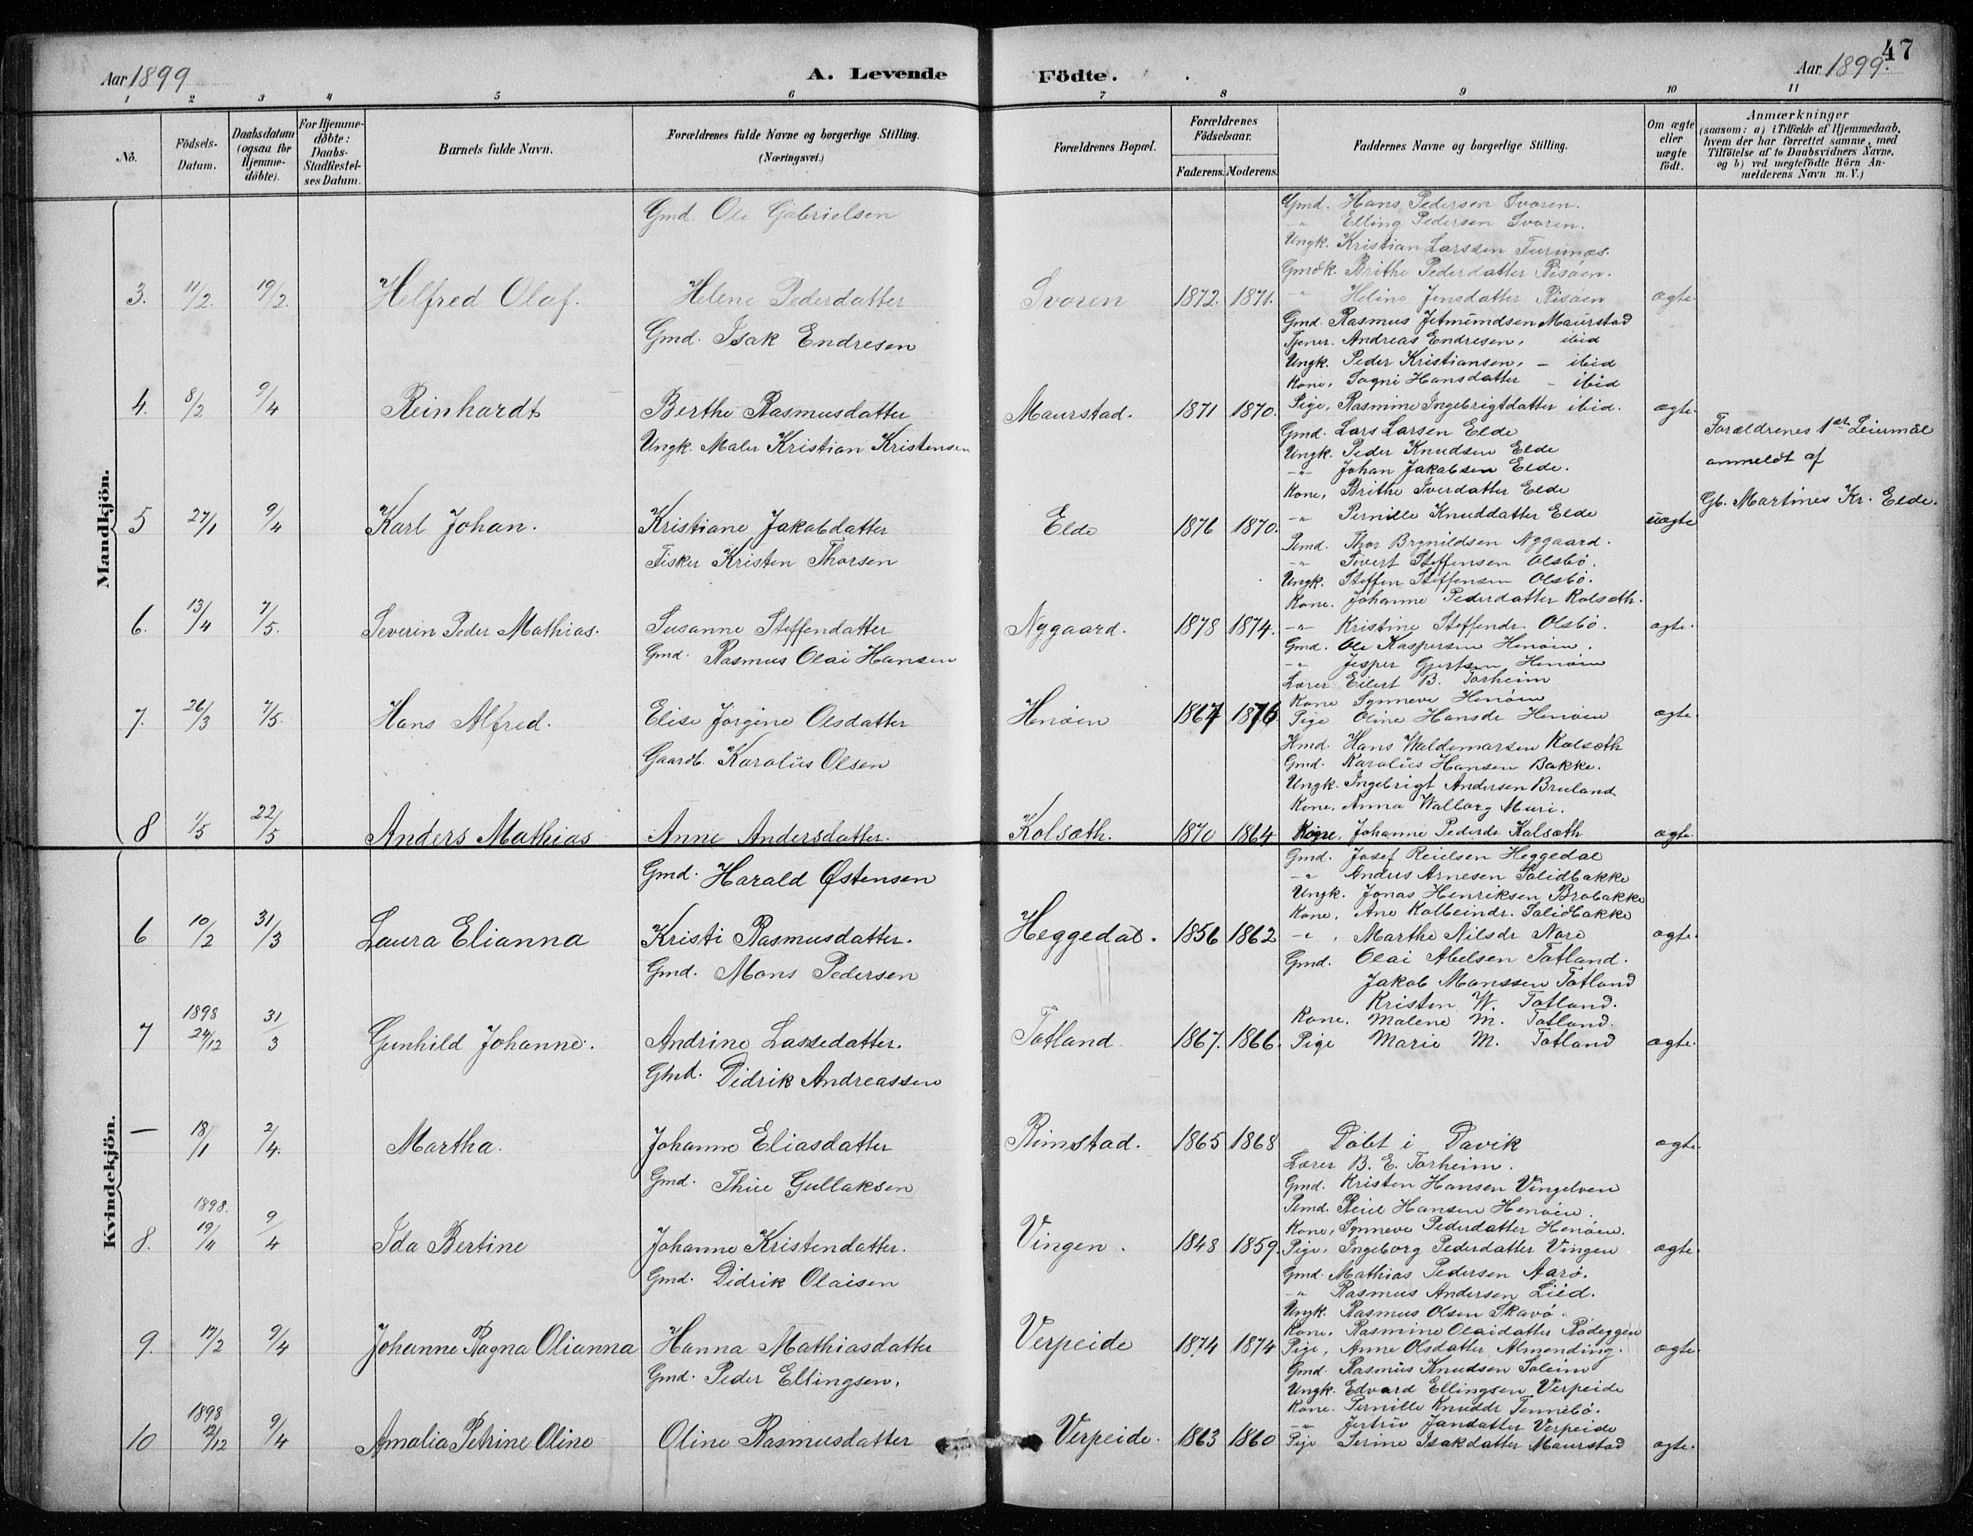 47
Aar 1899
A. Levende
Födte.
Aar 1899.
1 2 3 4 5 6 7 8 9 10 11
No.
Födsels-Datum.
Daabsdatum (ogsaa for Hjemme-döbte).
For Hjemme-döbte: Daabs-Stadfæstel-ses Datum.
Barnets fulde Navn.
Forældrenes fulde Navne og borgerlige Stilling. (Næringsvei.)
Forældrenes Bopæl.
Forældrenes Födselsaar.
Faderens. Moderens.
Faddernes Navne og borgerlige Stilling.
Om ægte eller uægte födt.
Anmærkninger
(saasom: a) i Tilfælde af Hjemmedaab, hvem der har forrettet samme, med Tilföielse af to Daabsvidners Navne, og b) ved uægtefödte Börn An-melderens Navn m. V.)
Mandkjön.
Gmd. Ole Gabrielsen
Gmd. Hans Pedersen Svoren.
-"- Elling Pedersen Svoren.
Ungk. Kristian Larssen Furunæs.
Gmdk. Brithe Pedersdatter Risöen.
3. 11/2 19/2. Helfred Olaf. Helene Pedersdatter Svoren 1872. 1871. -"- Heline Jensdatter Risöen ægte.
Gmd. Isak Endresen
Gmd. Rasmus Jetmundsen Maurstad
Tjener. Andreas Endresen, ibid
Ungk. Peder Kristiansen, - ibid
Kone, Sogni Hansdatter - ibid
4. 8/2 9/4 Reinhardt Berthe Rasmusdatter Maurstad. 1871 1870. Pige, Rasmine Ingebrigtdatter ibid. ægte.
Ungk. Maler Kristian Kristensen
Gmd. Lars Larsen Elde
Ungk. Peder Knudsen Elde
-"- Johan Jakobsen Elde.
Kone, Brithe Iverdatter Elde
Forældrenes 1ste Leiermål
anmeldt af
Gb. Martines Kr. Elde.
5 27/1 9/4 Karl Johan. Kristiane Jakobdatter Elde 1876 1870. -"- Pernille Knuddatter Elde uægte
Fisker Kristen Thorsen
Pemd. Thor Brynildsen Nygaard.
-"- Sivert Steffensen Olsbö.
Ungk. Steffen Steffensen Olsbö.
Kone. Johanne Pedersdatter Kolsæth.
6. 13/4 7/5. Severin Peder Mathias. Susanne Steffendatter Nygaard. 1878 1874. -"- Kristine Steffendr. Olsbö. ægte.
Gmd. Rasmus Olai Hansen
Gmd. Ole Kaspersen Henöen.
-"- Jesper Gjertsen Henöen
Lærer Eilert B. Torheim
Kone Synneve Henöen
7. 26/3 7/5. Hans Alfred. Elise Jörgine Olsdatter Henöen 1867 1876 Pige Oline Hansdr Henöen ægte
Gaardb. Karolüs Olsen
Hmd. Hans Waldemarsen Kolsæth
Gmd. Karolüs Hansen Bakke.
Ungk. Ingebrigt Andersen Bruland
Kone, Anna Walborg Muri.
8 1/5 22/5 Anders Mathias Anne Andersdatter. Kolsæth. 1870 1864 Kone, Johanne Pedersdr Kolsæth ægte.
Kvindekjön.
Gmd. Harald Østensen
Gmd. Josef Reielsen Heggedal
-"- Anders Arnesen Solidbakke
Ungk. Jonas Henriksen Brobakke
Kone, Ane Kolbeindr. Solidbakke
6 10/2 31/3 Laura Elianna Kristi Rasmusdatter. Heggedal. 1856 1862 -"-, Marthe Nilsdr Nore ægte.
Gmd. Mons Pedersen
Gmd. Olai Abelsen Totland.
Jakob Monssen Totland
Kristen W. Totland.
Kone, Malene M. Totland.
7 1898 24/12 31/3 Gunhild Johanne. Andrine Lassedatter. Totland 1867. 1866. Pige Marie M. Totland ægte.
Gmd. Didrik Andreassen
— 18/1 2/4. Martha. Johanne Eliasdatter Rimstad. 1865 1868 Döbt i Davik ægte.
Gmd. Thue Gullaksen
Lærer B. E. Torheim.
Gmd. Kristen Hansen Vingelven
Pemd. Reiel Hansen Henöen.
Kone, Synneve Pedersdatter Henöen.
8. 1898. 19/11 9/4 Ida Bertine Johanne Kristendatter. Vingen. 1848 1859. Pige, Ingeborg Pedersdatter Vingen ægte.
Gmd. Didrik Olaisen
Gmd. Mathias Pedersen Aarö.
-"- Rasmus Andersen Lied.
Ungk. Rasmus Olsen Skavö.
Kone, Rasmine Olaidatter Rödeggen
9. 12/2 9/4 Johanne Ragna Olianna Hanna Mathiasdatter Verpeide 1874 1874 Pige, Anne Olsdatter Almending. ægte.
Gmd. Peder Ellingsen,
Gmd. Rasmüs Knudsen Soleim
Ungk. Edvard Ellingsen Verpeide
Kone. Pernille Knuddr Tennebö.
-"- Jertrüv Jansdatter Verpeide
10 1898 12/12 9/4 Amalia Petrine Oline Oline Rasmusdatter Verpeide. 1863 1860 Pige Serine Isakdatter Maurstad ægte.